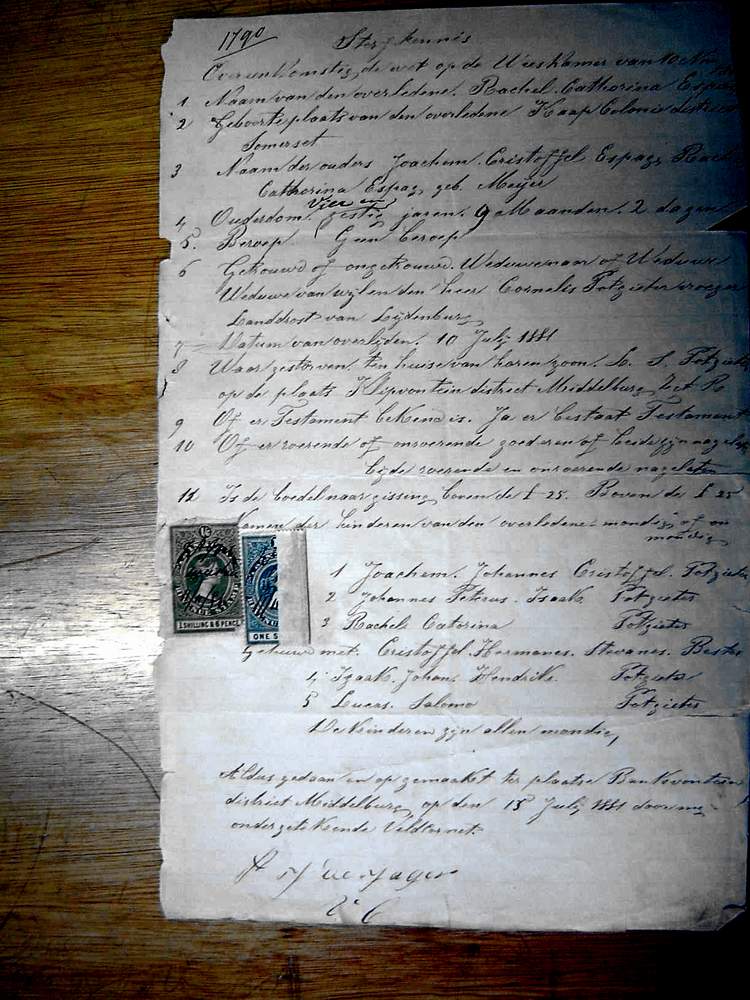 1790
Sterfkennis
Overeenkomstig de wet op de Weeskamer van
1 Naam van den overledene. Rachel. Catharina Espag
2 Geboorteplaats van den overledene Kaap Colonie district
Somerset
3 Naam der ouders Joachem. Cristoffel Espag, Rachel
Catherina Espag geb. Meijer
Vier en
4 Ouderdom. zestig jaren. 9 Maanden. 2 dagen
5. Beroep Geen beroep
6 Getrouwd of ongetrouwd. Weduwenaar of Weduwe
Weduwe van wijlen den heer Cornelis Potgieter vroeger
Landdrost van Lijdenburg
7 Datum van overlijden. 10 Julij 1881
8 Waar gestorven. ten huise van haren zoon. L. S. Potgieter
op de plaats Klipvontein district Middelburg
9 Of er Testament bekend is. Ja er bestaat Testament
10 Of er roerende of onroerende goederen of beide zijn nagelaten
beide roerende en onroerende nagelaten
11 Is de boedel naar gissing boven de £ 25. Boven de £ 25
Namen der kinderen van den overledene mondig of on
mondig
1 Joachem. Johannes Cristoffel. Potgieter
2 Johannes Peterus. Isaak Potgieter
3 Rachele Catorina Potgieter
Getruwd met. Cristoffel. Hermanes. Stevanes. Bester
4 Izaak. Johan. Hendrik. Potgieter
5 Lucas. Salomo Potgieter
De Kinderen zijn allen mondig
1 SHILLING & 6 PENCE
ONE S
Aldus gedaan en opgemaakt ter plaatse Bankvontein
district Middelburg op den 15 Julij 1881 door mij
ondergetekende Veldkornet
de Jager
V C